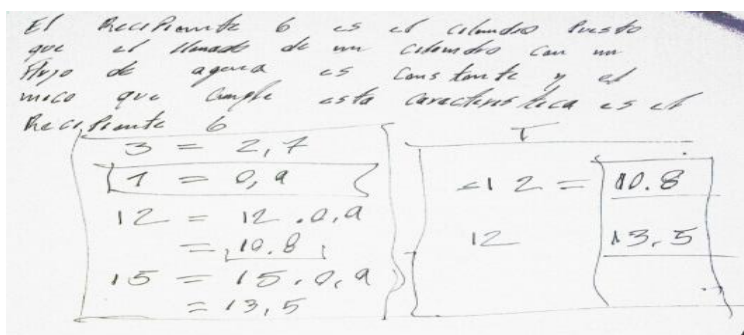 El Recipiente 6 es el cilindro Puesto
que el llenado de un cilindro con un
Flujo de agua es constante y el
unico que cumple esta caracteristica es el
Recipiente 6
3 = 2,7
1 = 0,9
12 = 12 . 0,9
= 10.8
15 = 15 . 0,9
= 13,5
T
12 = 10.8
12 13,5